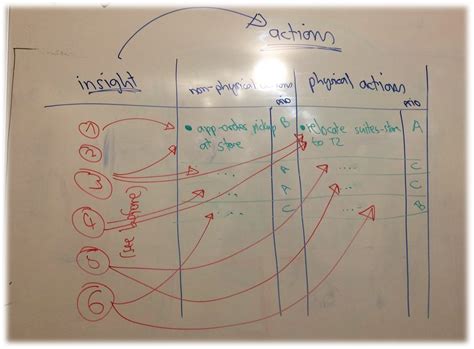 actions
insight
non-physical actions
physical actions
prio
prio
1
• app-orders pickup
at store
B
• relocate suites-store
to T2
A
2
3
....
A
....
C
4
....
A
....
C
(see before)
....
C
....
B
5
6